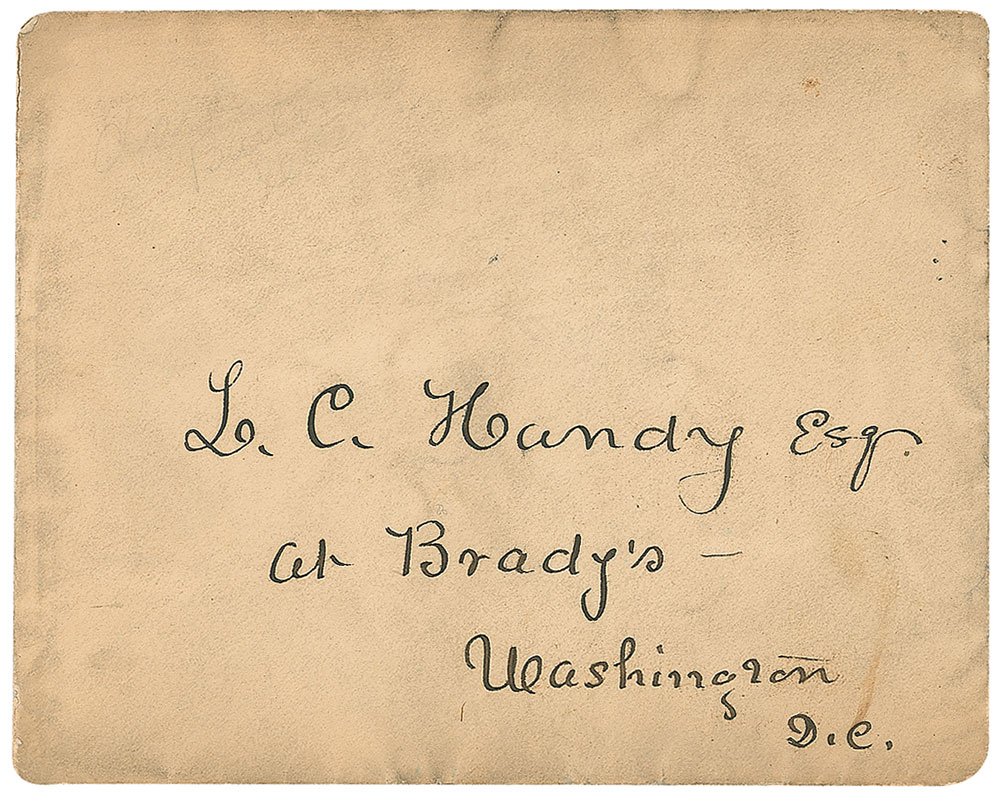 L. C. Handy Esq.
at Brady's –
Washington
D.C.